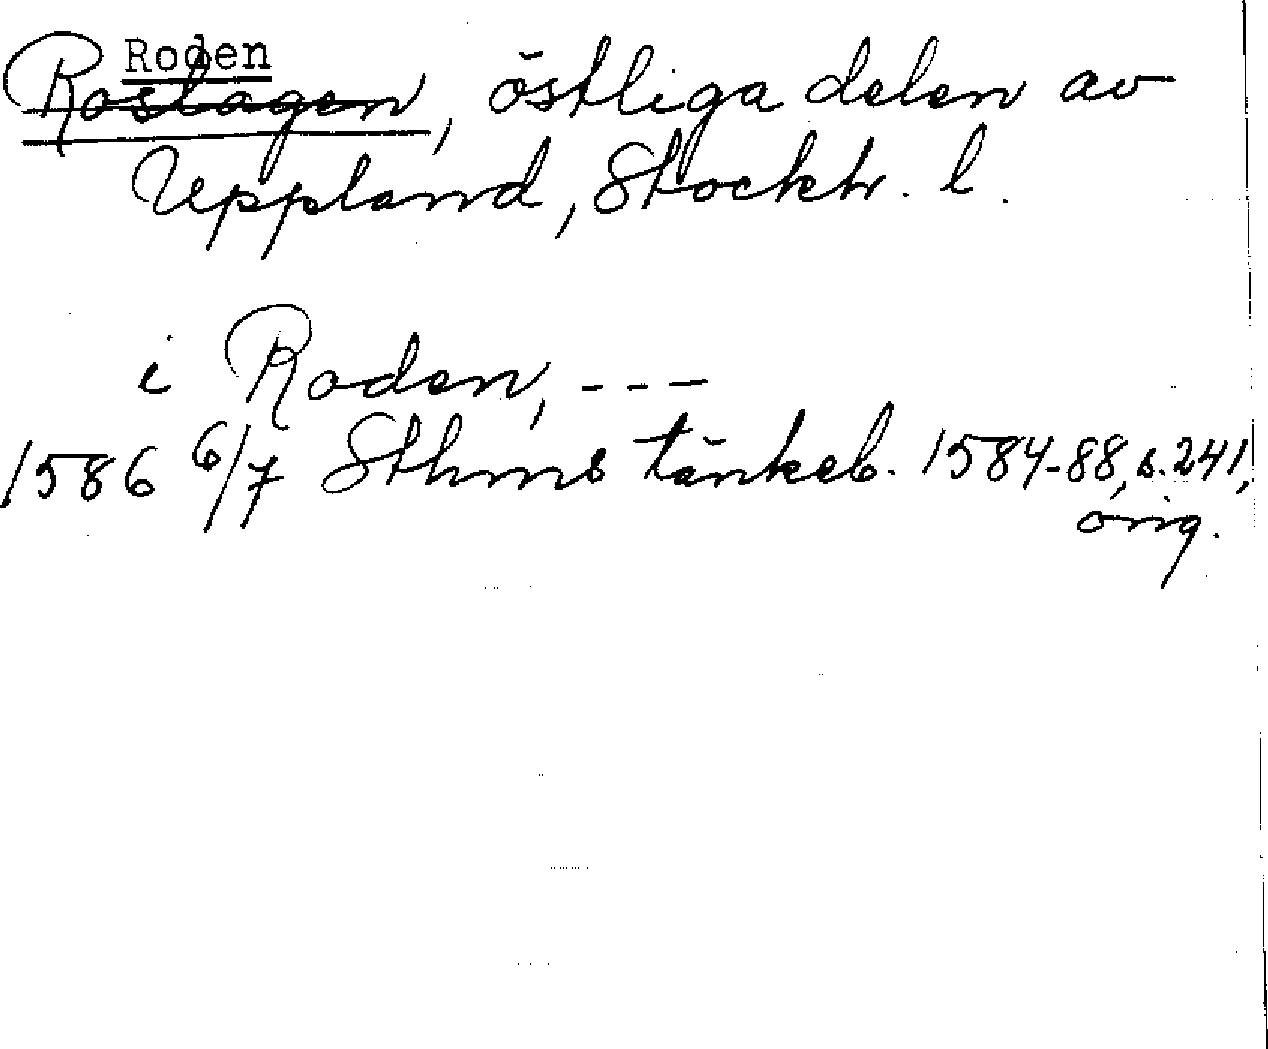 Roden
Roslagen, östliga delen av
Uppland, Stockh. l.
i Roden, ---
1586 6/7 Sthms tänkeb. 1584-88, s. 241,
orig.